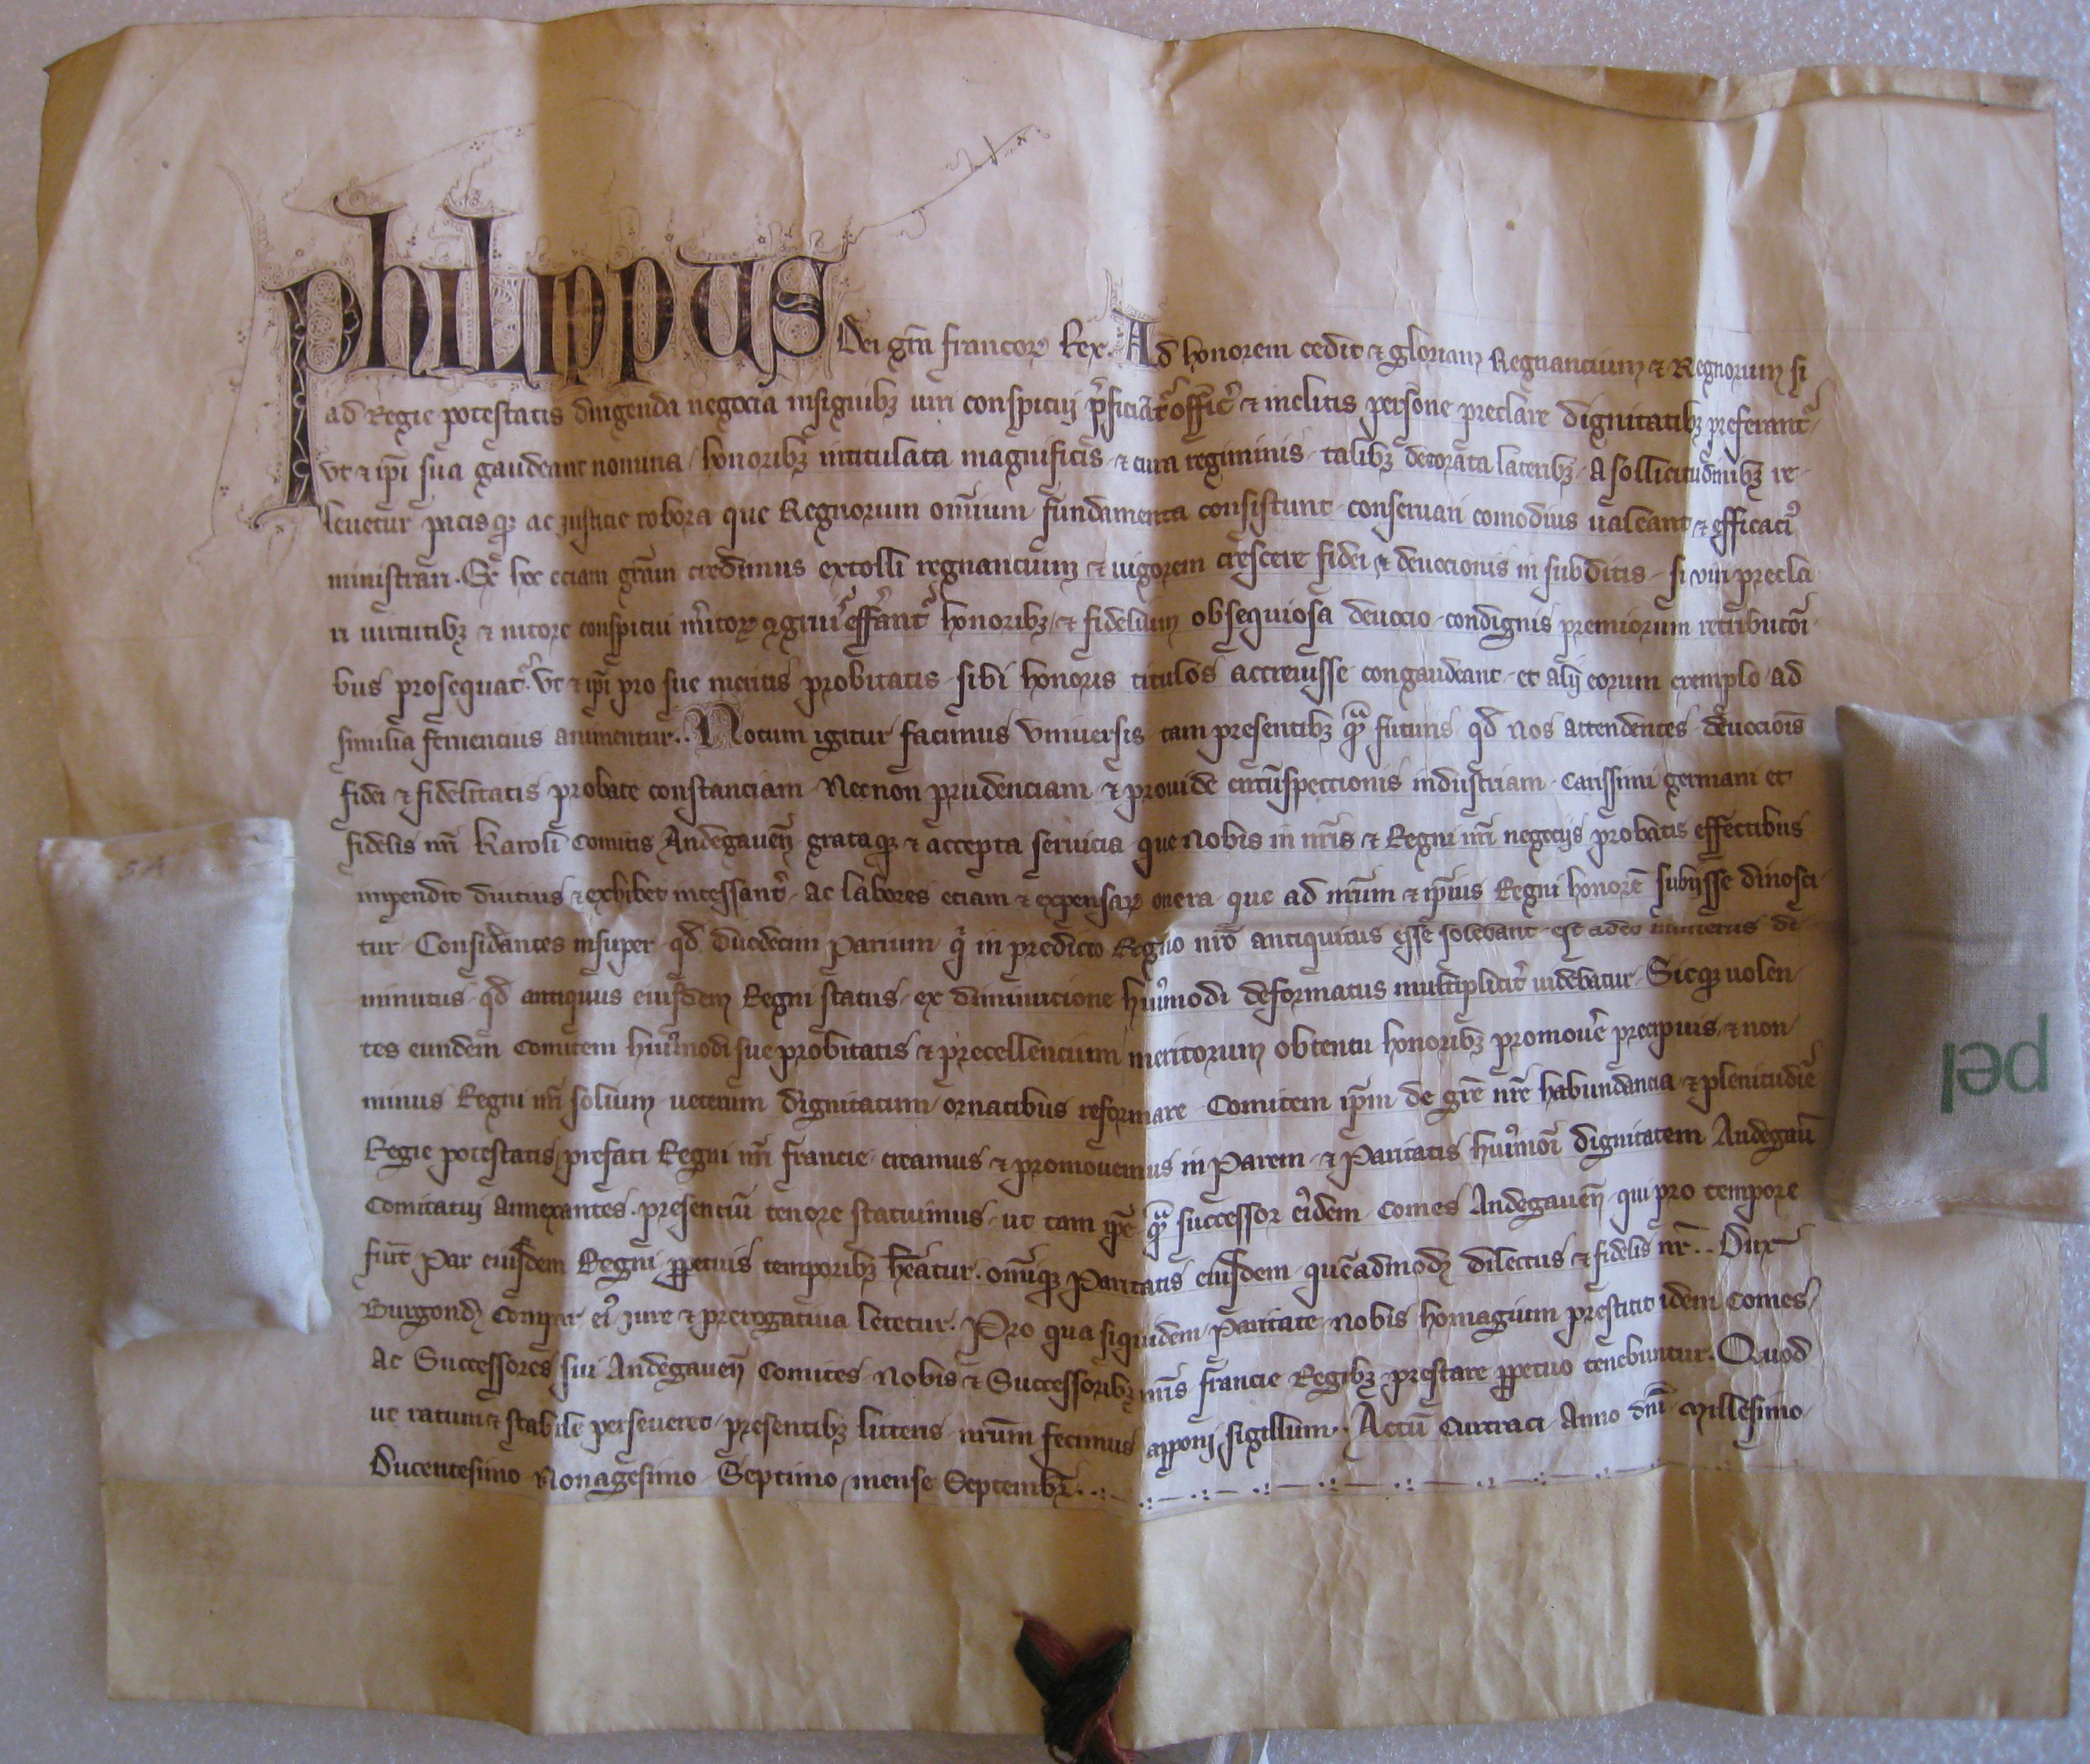 Philippus Dei grã francoꝝ Rex. Ad honorem cedit ⁊ gloriam Regnancium ⁊ Regnorum si
ad Regie potestatis dirigenda negocia insignibꝫ uiri conspicui p̃ficiãt᷑ offic̃ ⁊ inclitis persone preclare dignitatibꝫ preferant᷑
vt ⁊ ip̃i sua gaudeant nomina honoribꝫ intitulata magnificis ⁊ cura regiminis talibꝫ decorata lateribꝫ a sollicitudinibꝫ re
leuetur pacisqꝫ ac justicie robora que Regnorum om̃ium fundamenta consistunt conseruari comodius ualeant ⁊ efficaci᷑
ministrari. Ex hec eciam gr̃am credimus extolli regnancium ⁊ uigorem crescere fidei ⁊ deuocionis in subditis si viri precla
ri uirtutibꝫ ⁊ nitore conspicui m̃itoꝝ ꝯgrui᷑ effer̃ant᷑ honoribꝫ ⁊ fidelium obsequiosa deuocio condignis premiorum retributoĩ
bus prosequat᷑. Vt ⁊ ip̃i pro sue meritis probitatis sibi honoris titulos accreuisse congaudeant et alij eorum exemplo ad
similia feruencius animentur.. Notum igitur facimus Vniuersis tam presentibꝫ qꝫ̃ futuris qđ nos attendentes deuociõis
fidei ⁊ fidelitatis probate constanciam Necnon prudenciam ⁊ prouide circũspectionis industriam carissimi germani et
fidelis nr̃i Karoli Comitis Andegaueñ grataqꝫ ⁊ accepta seruicia que nobis in nr̃is ⁊ Regni nr̃i negocijs probatis effectibus
inpendit diucius ⁊ exhibet incessant᷑ ac labores eciam ⁊ expensaꝝ onera que ad nr̃um ⁊ ip̃ius Regni honorẽ subijsse dinosci
tur Consid̃antes insuper qđ duodecim Parium q̃ in predicto Regno nr̃o antiquitus esse solebant est adeo numerus di
minutus qđ antiquus eiusdem Regni status ex diminucione hui᷑modi deformatus multiplicit᷑ uidebatur Sicqꝫ uolen
tes eundem Comitem hui᷑modi sue probitatis ⁊ precellencium meritorum obtentu honoribꝫ promouẽ precipuis ⁊ non
minus Regni nr̃i solium ueterum dignitatum ornatibus reformare Comitem ip̃m de gr̃e nr̃e habundancia ⁊ plenitudĩe
Regie potestatis prefati Regni nr̃i francie creamus ⁊ promouemus in Parem ⁊ Paritatis hui᷑moĩ dignitatem Andegaũ
Comitatui annexantes presenciũ tenore statuimus ut tam ip̃e qꝫ̃ successor ei᷑dem Comes Andegaueñ qui pro tempore
fuit̃ Par eiusdem Regni ꝑpetuis temporibꝫ h̃eatur. om̃iqꝫ Paritatis eiusdem quẽadmodꝫ dilectus ⁊ fidelis nr̃.. Dux
Burgonđ Compar ei᷑ jure ⁊ prerogatiua letetur. Pro qua siquidem Paritate nobis homagium prestitit idem Comes
ac Successores sui Andegaueñ Comites Nobis ⁊ Successoribꝫ nr̃is francie Regibꝫ prestare ꝑpetuo tenebuntur. Quod
ut ratum ⁊ stabile perseueret presentibꝫ litteris nr̃um fecimus apponi sigillum. Actũ Curtraci Anno dñi Millesimo
Ducentesimo Nonagesimo Septimo mense Septembr̃.
pel